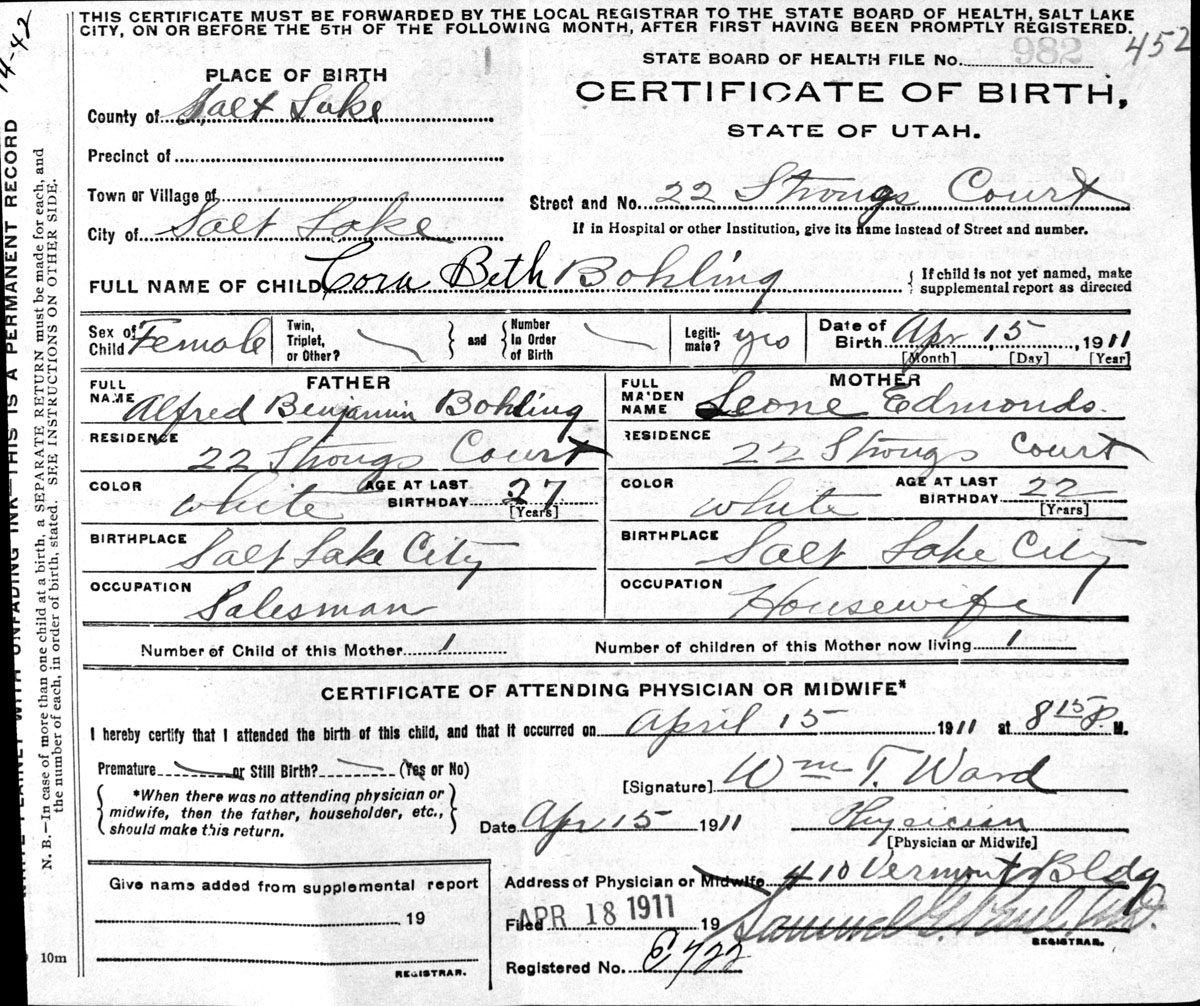 THIS CERTIFICATE MUST BE FORWARDED BY THE LOCAL REGISTRAR TO THE STATE BOARD OF HEALTH, SALT LAKE
CITY, ON OR BEFORE THE 5TH OF THE FOLLOWING MONTH, AFTER FIRST HAVING BEEN PROMPTLY REGISTERED.
452
STATE BOARD OF HEALTH FILE No. 982
PLACE OF BIRTH
CERTIFICATE OF BIRTH,
STATE OF UTAH.
County of Salt Lake
Precinct of
Town or Village of
City of Salt Lake
Street and No. 22 Strongs Court
If in Hospital or other Institution, give its name instead of Street and number.
FULL NAME OF CHILD Cora Beth Bohling
{ If child is not yet named, make
supplemental report as directed
Sex of Child Female
Twin, Triplet, or Other?
and
Number In Order of Birth
Legiti-mate? yes
Date of Birth Apr 15, 1911
[Month] [Day] [Year]
FATHER
FULL NAME Alfred Benjamin Bohling
RESIDENCE 22 Strongs Court
COLOR white
AGE AT LAST BIRTHDAY 27
[Years]
BIRTHPLACE Salt Lake City
OCCUPATION Salesman
MOTHER
FULL MAIDEN NAME Leone Edmonds
RESIDENCE 22 Strongs Court
COLOR white
AGE AT LAST BIRTHDAY 22
[Years]
BIRTHPLACE Salt Lake City
OCCUPATION Housewife
Number of Child of this Mother 1
Number of children of this Mother now living 1
CERTIFICATE OF ATTENDING PHYSICIAN OR MIDWIFE*
I hereby certify that I attended the birth of this child, and that it occurred on April 15 1911 at 8 15 P. M.
Premature or Still Birth? (Yes or No)
*When there was no attending physician or
midwife, then the father, householder, etc.,
should make this return.
[Signature] Wm T. Ward
Date Apr 15 1911
Physician
[Physician or Midwife]
Give name added from supplemental report
19
REGISTRAR.
10m
Address of Physician or Midwife 410 Vermont Bldg
Filed APR 18 1911 19
Samuel G. Paul, M.D.
REGISTRAR.
Registered No. 722
UNFADING INK—THIS IS A PERMANENT RECORD
N. B.—In case of more than one child at a birth, a SEPARATE RETURN must be made for each, and
the number of each, in order of birth, stated. SEE INSTRUCTIONS ON OTHER SIDE.